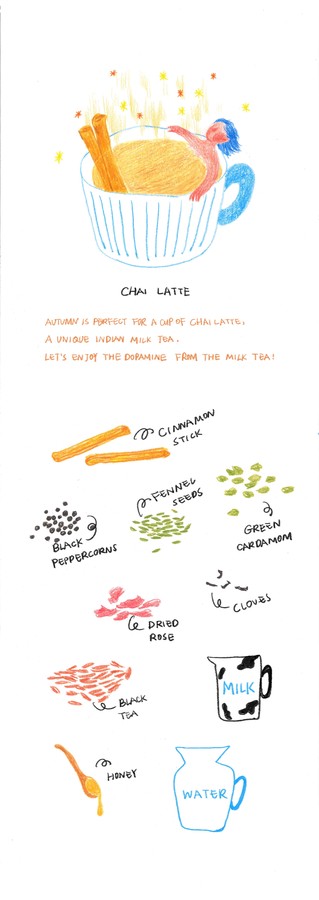 CHAI LATTE
AUTUMN IS PERFECT FOR A CUP OF CHAI LATTE,
A UNIQUE INDIAN MILK TEA.
LET'S ENJOY THE DOPAMINE FROM THE MILK TEA!
CINNAMON
STICK
FENNEL
SEEDS
BLACK
PEPPERCORNS
GREEN
CARDAMOM
CLOVES
DRIED
ROSE
BLACK
TEA
MILK
HONEY
WATER